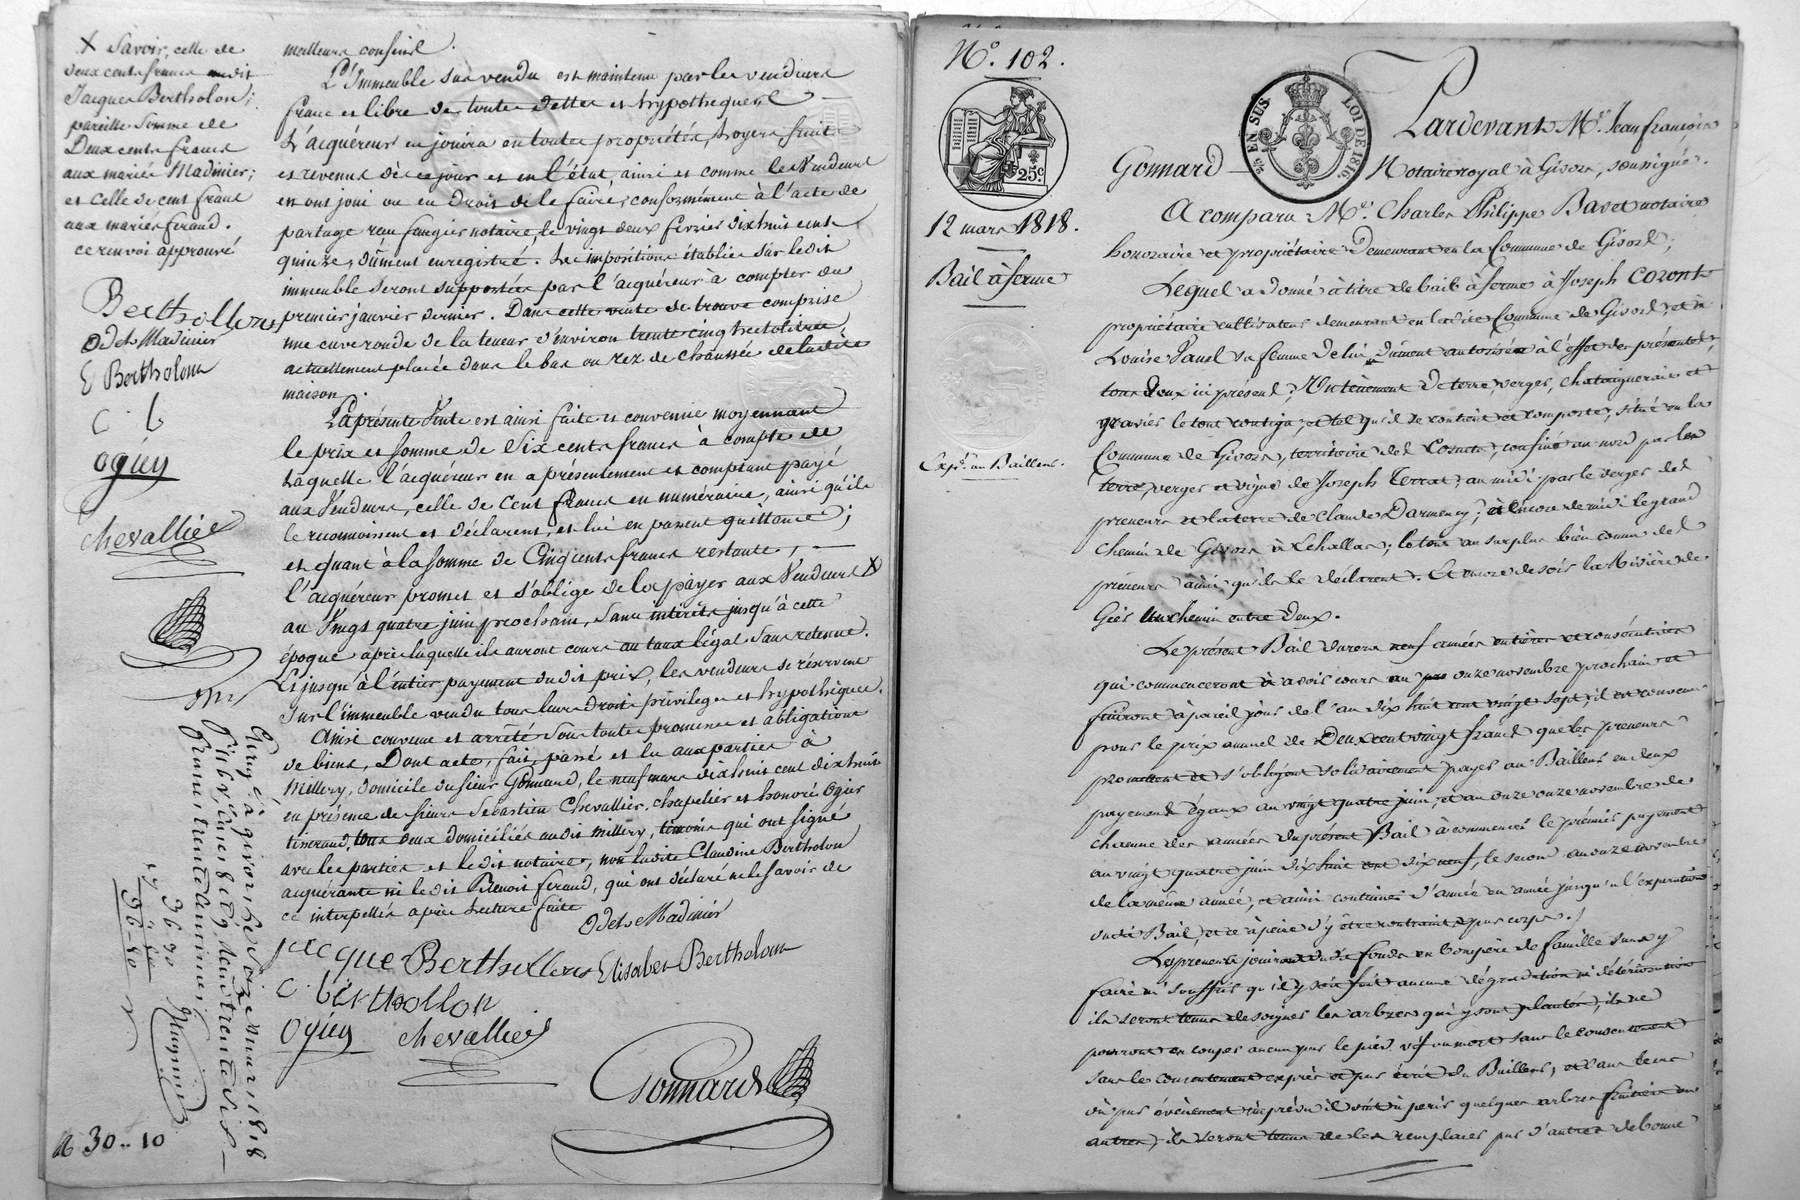 X Savoir, celle de
deux cents francs audit
Jacques Bertholon;
pareille somme de
Deux cents francs
aux mariés Madinier;
et celle de cent francs
aux mariés feraud.
ce renvoi approuvé
Berthollon
Odet Madinier
E Bertholon
C. b
ogier
chevallier
Enreg.é à givors le seize mars 1818
30 .. 10
meilleurs confins.
L'Immeuble sus vendu est maintenu par les vendeurs
franc et libre de toutes dettes et hypothèques.
L'acquéreur en jouira en toutes propriétés, loyers fruits
et revenus dès ce jour et en l'état, ainsi et comme les Vendeurs
en ont joui ou eu droit de le faire, conformément à l'acte de
partage reçu notaire, le vingt deux février dix huit cent
quinze, dûment enregistré. Les impositions établies sur ledit
immeuble seront supportées par l'acquéreur à compter du
premier janvier dernier. Dans cette vente se trouve comprise
une cuve ronde de la teneur d'environ trente cinq hectolitres
actuellement placée dans le bas ou rez de chaussée de ladite
maison.
La présente Vente est ainsi faite et convenue moyennant
le prix et somme de Six cents francs à compte de
laquelle l'acquéreur en a présentement et comptant payé
aux Vendeurs, celle de Cent francs en numéraire, ainsi qu'ils
le reconnoissent et déclarent, et lui en passent quittance;
et quant à la somme de Cinq cents francs restante,
l'acquéreur promet et s'oblige de la payer aux Vendeurs X
au Vingt quatre juin prochain, sans intérêts jusqu'à cette
époque après laquelle ils auront cours au taux légal sans retenue.
Et jusqu'à l'entier payement dudit prix, les vendeurs se réservent
sur l'immeuble vendu tous leurs droits privilèges et hypothèques.
Ainsi convenu et arrêté sous toutes promesses et obligations
de biens, Dont acte, fait, passé et lu aux parties à
Millery, domicile du sieur Gonnard, le neuf mars dix huit cent dix huit
en présence de sieurs Sébastien Chevallier, chapelier et honoré Ogier
tisserand, tous deux domiciliés audit Millery, témoins qui ont signé
avec les parties et ledit notaire, non ladite Claudine Bertholon
acquérante ni ledit Benoit feraud, qui ont déclaré ne le savoir de
ce interpellés après lecture faite
Odet Madinier
jacque Berthollon Elisabet Bertholon
C. berthollon
ogier chevallier
Gonnard
N.º 102.
25ᶜ
12 mars 1818.
Bail à ferme
Exp.on au Bailleur.
25 EN SUS LOI DE 1816.
Pardevant M.e Jean françois
Gonnard Notaire royal à Givors, soussigné.
A comparu M.r Charles Philippe Bavet notaire
honoraire et propriétaire Demeurant en la Commune de Givors;
Lequel a donné à titre de bail à ferme à Joseph Coront
propriétaire cultivateur demeurant en ladite Commune de Givors, et à
Louise sa femme de lui dûment autorisée à l'effet des présentes,
tous deux ici présents; Un tènement de terre, verger, chataigneraie et
gravier le tout contigu, et tel qu'il se contient et comporte, situé en la
Commune de Givors, territoire del confiné au nord par les
terre, verger et vigne de Joseph Terrat; au midi par le verger del
preneurs et la terre de Claude Darmency; et encore de midi le grand
chemin de Givors à Echallas; le tout au surplus bien connu del
preneurs ainsi qu'ils le déclarent. Et encore de soir la Rivière de
Gier Un chemin entre deux.
Le présent Bail durera neuf années entières et consécutives
qui commenceront à avoir cours au onze novembre prochain et
finiront à pareil jour de l'an dix huit cent vingt sept; il est convenu
pour le prix annuel de Deux cent vingt francs que les preneurs
promettent et s'obligent solidairement payer au Bailleur en deux
payements égaux au vingt quatre juin, et au onze onze novembre de
chacune des années du présent Bail à commencer le premier payement
au vingt quatre juin dix huit cent dix neuf, le second au onze novembre
de la même année, et ainsi continuer d'année en année jusqu'à l'expiration
dudit Bail, et ce à peine d'y être contraints par corps.
Les preneurs jouiront du dit fonds en bons père de famille sans y
faire ni souffrir qu'il y soit fait aucune dégradation ni détérioration
ils seront tenus de soigner les arbres qui y sont plantés, ils ne
pourront en couper aucuns par le pied vif ou mort sans le consentement
sans le consentement exprès et par écrit du Bailleur, et dans le cas
où par évènement imprévu il vint à périr quelques arbres fruitiers ou
autres, ils seront tenus de les remplacer par d'autres de bonne